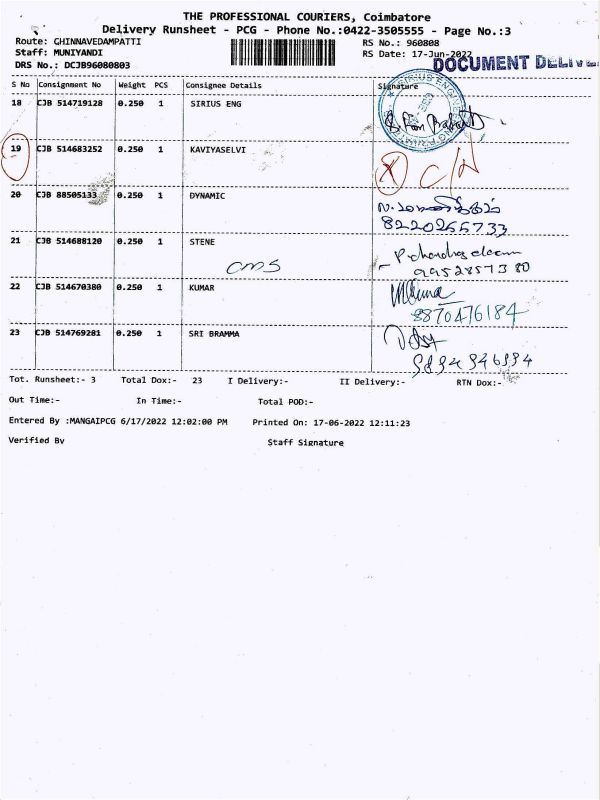 THE PROFESSIONAL COURIERS, Coimbatore
Delivery Runsheet - PCG - Phone No.:0422-3505555 - Page No.:3
Route: CHINNAVEDAMPATTI RS No.: 960808
Staff: MUNIYANDI RS Date: 17-Jun-2022
DOCUMENT
DRS No.: DCJB96080803
S No Consignment No Weight PCS Consignee Details Signature
18 CJB 514719128 0.250 1 SIRIUS ENG
19 CJB 514683252 0.250 1 KAVIYASELVI
20 CJB 88505133 0.250 1 DYNAMIC
8220265733
21 CJB 514688120 0.250 1 STENE
cms
9952857380
22 CJB 514670380 0.250 1 KUMAR
8870476184
23 CJB 514769281 0.250 1 SRI BRAMMA
Tot. Runsheet:- 3 Total Dox:- 23 I Delivery:- II Delivery:- RTN Dox:-
Out Time:- In Time:- Total POD:-
Entered By :MANGAIPCG 6/17/2022 12:02:00 PM Printed On: 17-06-2022 12:11:23
Verified By Staff Signature